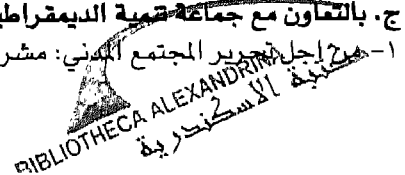 ج. بالتعاون مع جماعة تنمية الديمقراطي
١- من إجل تحرير المجتمع المدني: مشر
BIBLIOTHECA ALEXANDRINA
مكتبة الاسكندرية